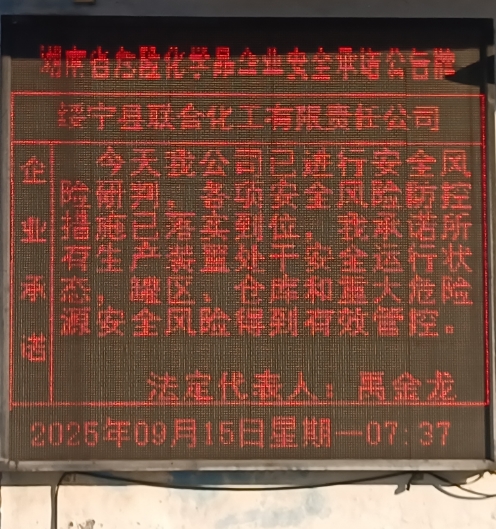 湖南省危险化学品企业安全承诺公告牌
绥宁县联合化工有限责任公司
企业承诺
今天我公司已进行安全风
险研判，各项安全风险防控
措施已落实到位，我承诺所
有生产装置处于安全运行状
态，罐区、仓库和重大危险
源安全风险得到有效管控。
法定代表人：禹金龙
2025年09月15日星期一07:37